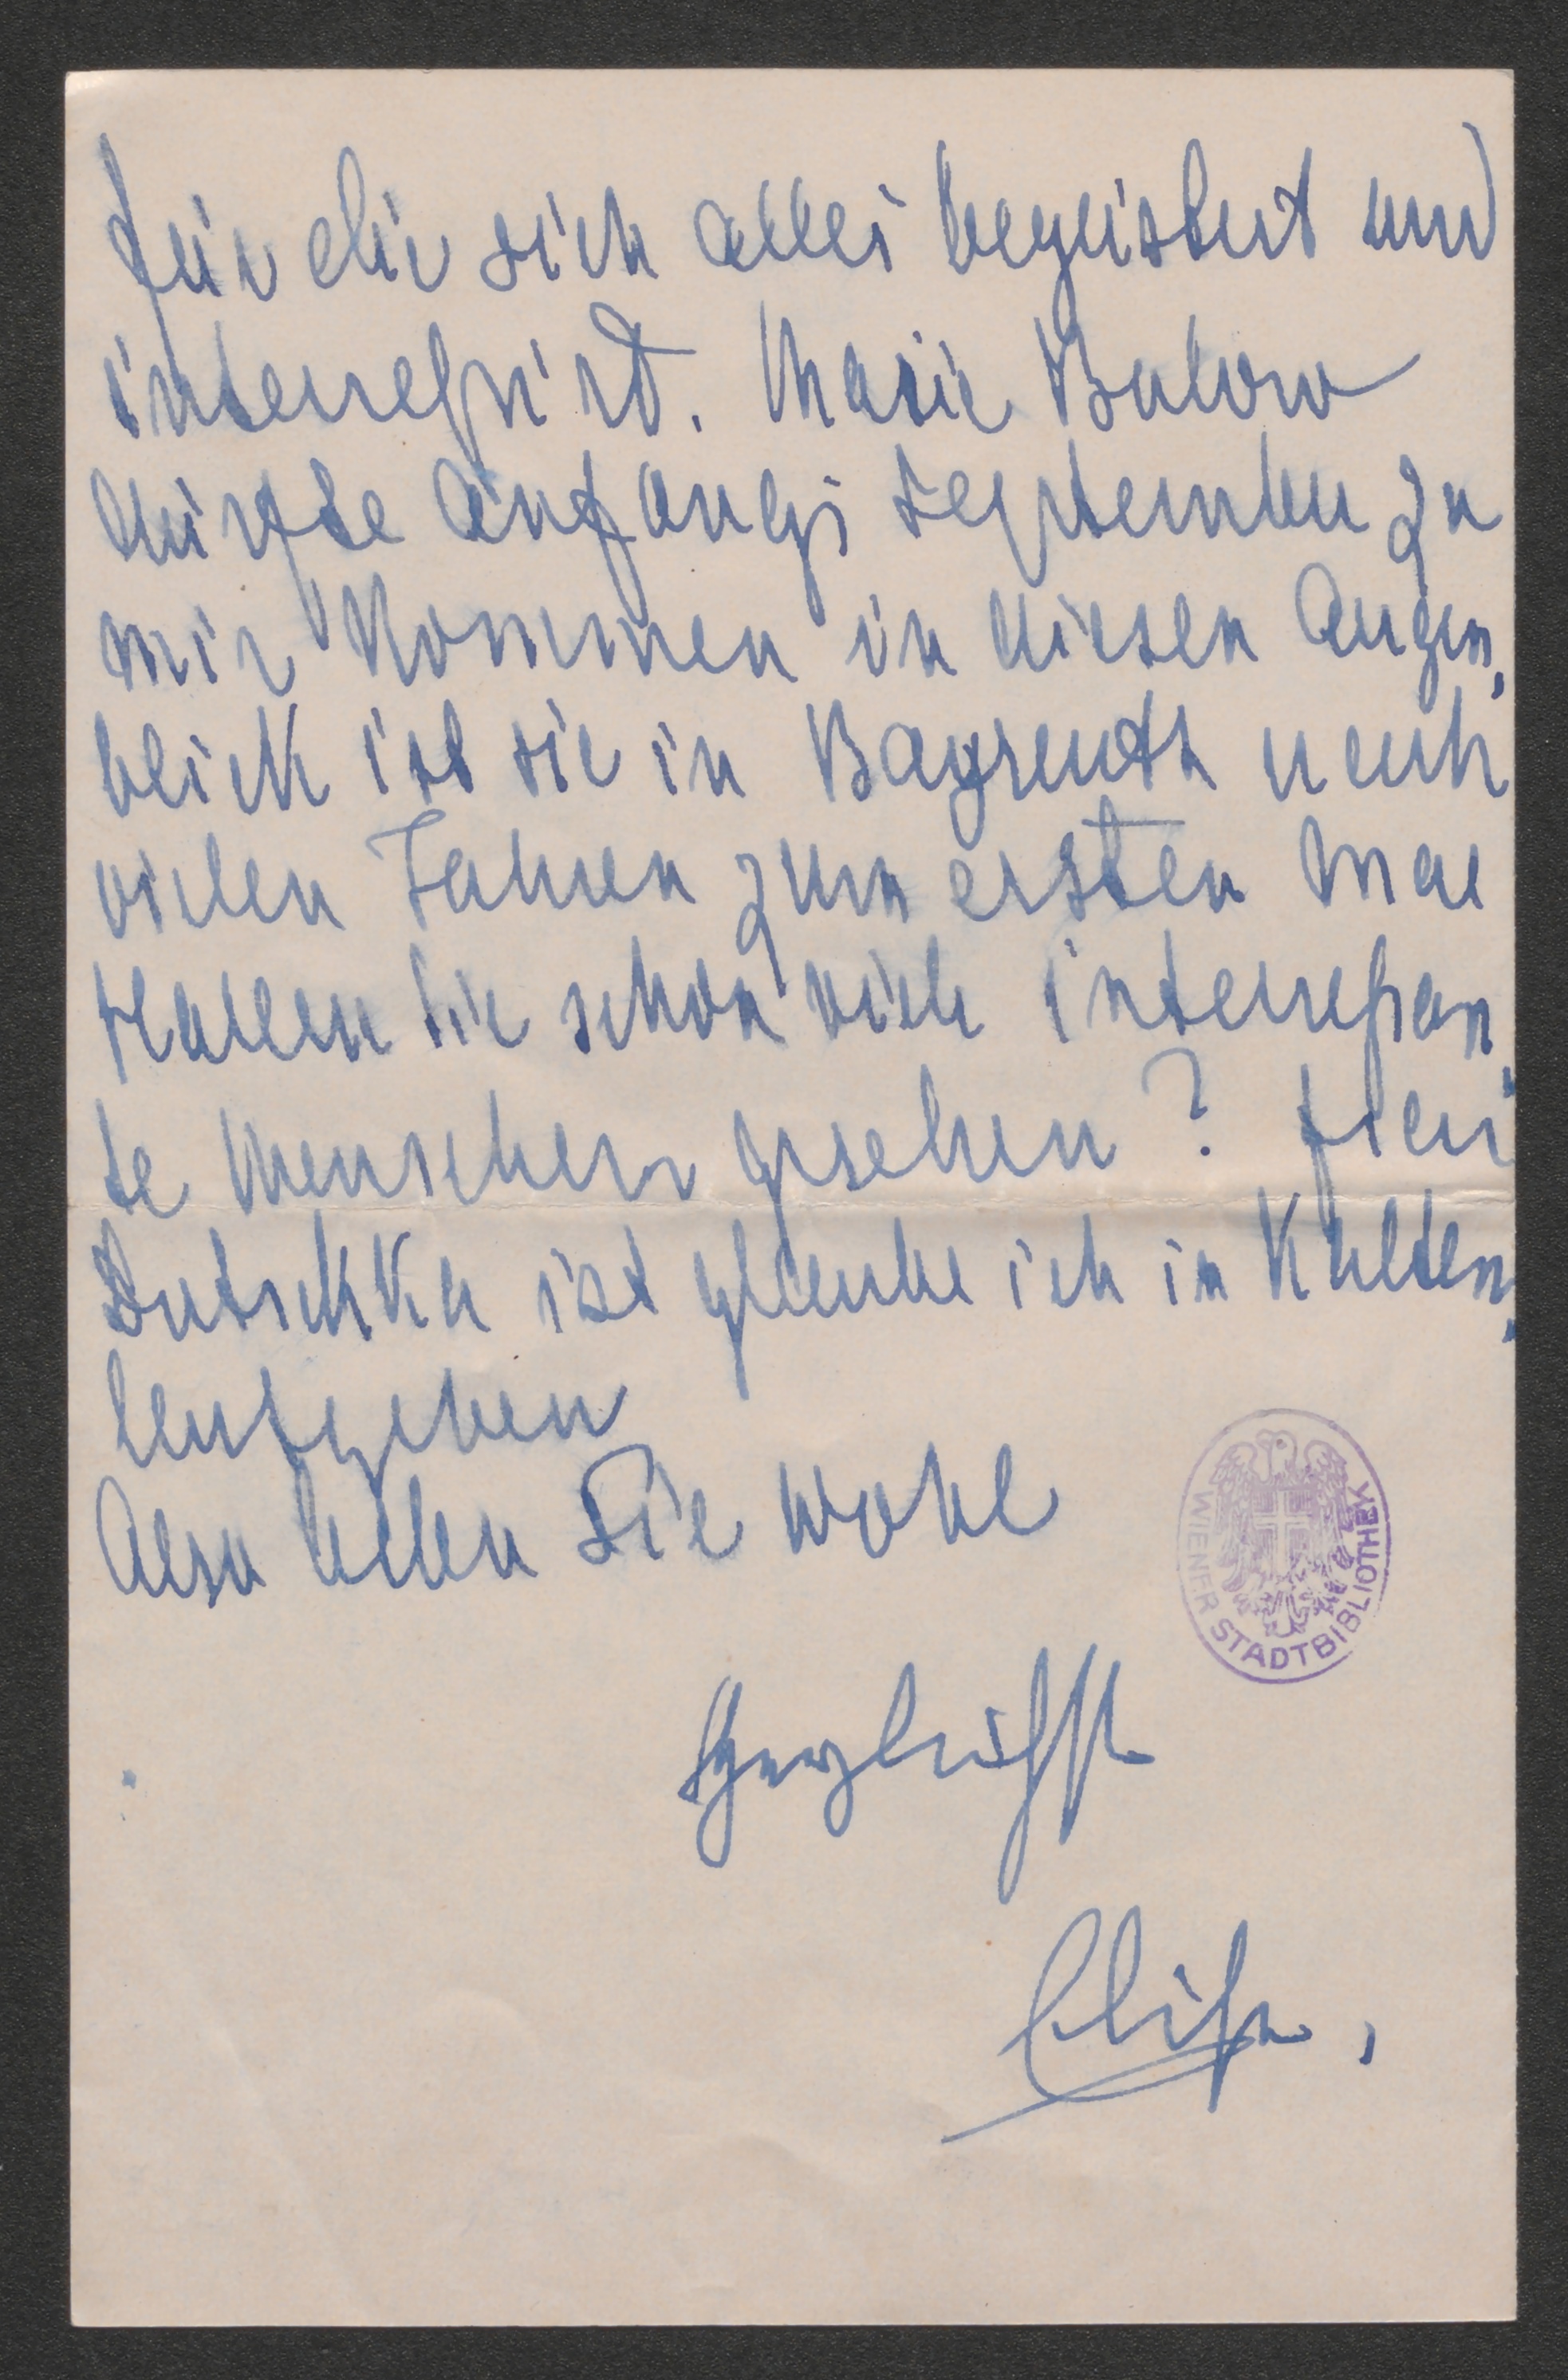 für die sich alles begeistert und
interreßirt. Marie Bulow
dürfte Anfangs September zu
mir kommen in diesen Augen,
blick ist sie in Bayreuth nach
vielen Jahren zum ersten Mal
Haben Sie schon viele interreßan,
te Menschen gesehen? Frau
Dutschka ist glaube ich in Kalten,
leutgeben
Also leben Sie wohl
Herzlichst
WIENER STADTBIBLIOTHEK